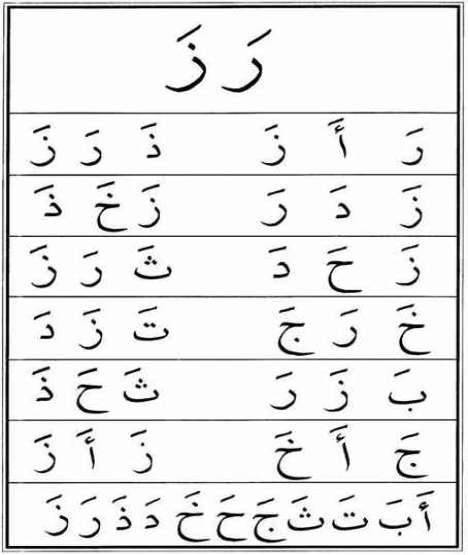 رَ زَ
رَ أَ زَ ذَ رَ زَ
زَ دَ رَ زَ خَ ذَ
زَ حَ دَ ثَ رَ زَ
خَ رَ جَ تَ زَ دَ
بَ زَ رَ ثَ حَ ذَ
جَ أَ خَ زَ أَ زَ
أَ بَ تَ ثَ جَ حَ خَ دَ ذَ رَ زَ